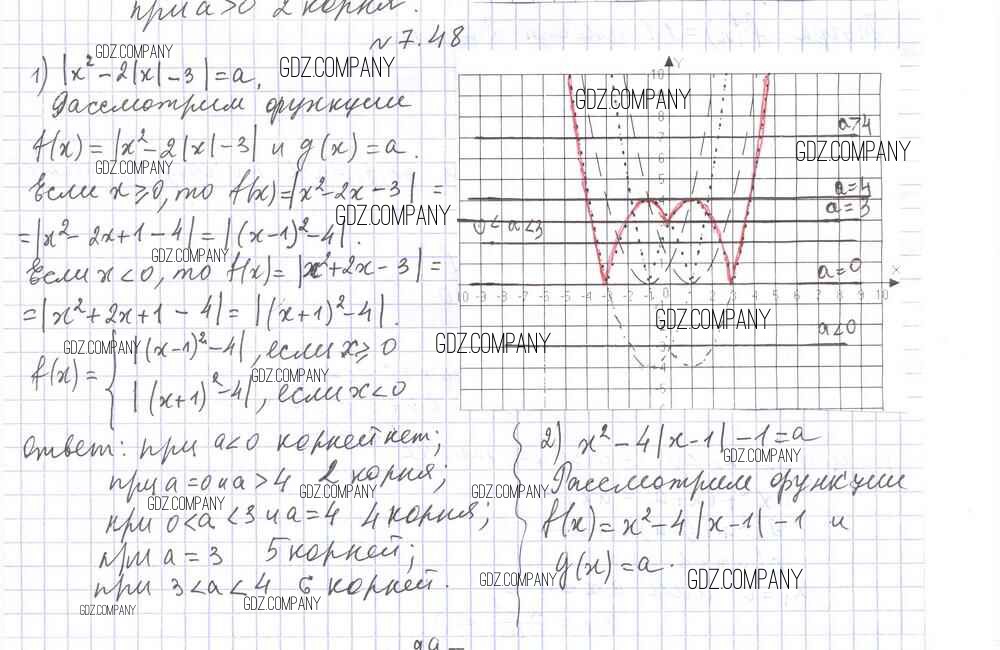 при a>0 2 корня.
№7.48
1) |x²-2|x|-3|=a.
Рассмотрим функции
f(x)=|x²-2|x|-3| и g(x)=a.
Если x⩾0, то f(x)=|x²-2x-3|=
=|x²-2x+1-4|=|(x-1)²-4|.
Если x<0, то f(x)=|x²+2x-3|=
=|x²+2x+1-4|=|(x+1)²-4|.
f(x)={ |(x-1)²-4|, если x⩾0
|(x+1)²-4|, если x<0
Ответ: при a<0 корней нет;
при a=0 и a>4 2 корня;
при 0<a<3 и a=4 4 корня;
при a=3 5 корней;
при 3<a<4 6 корней.
Y
10
a>4
a=4
a=3
0<a<3
a=0
X
-10 -9 -8 -7 -6 -5 -4 -3 -2 -1 0 1 2 3 4 5 6 7 8 9 10
a<0
2) x²-4|x-1|-1=a
Рассмотрим функции
f(x)=x²-4|x-1|-1 и
g(x)=a.
GDZ.COMPANY
GDZ.COMPANY
GDZ.COMPANY
GDZ.COMPANY
GDZ.COMPANY
GDZ.COMPANY
GDZ.COMPANY
GDZ.COMPANY
GDZ.COMPANY
GDZ.COMPANY
GDZ.COMPANY
GDZ.COMPANY
GDZ.COMPANY
GDZ.COMPANY
GDZ.COMPANY
GDZ.COMPANY
GDZ.COMPANY
GDZ.COMPANY
GDZ.COMPANY